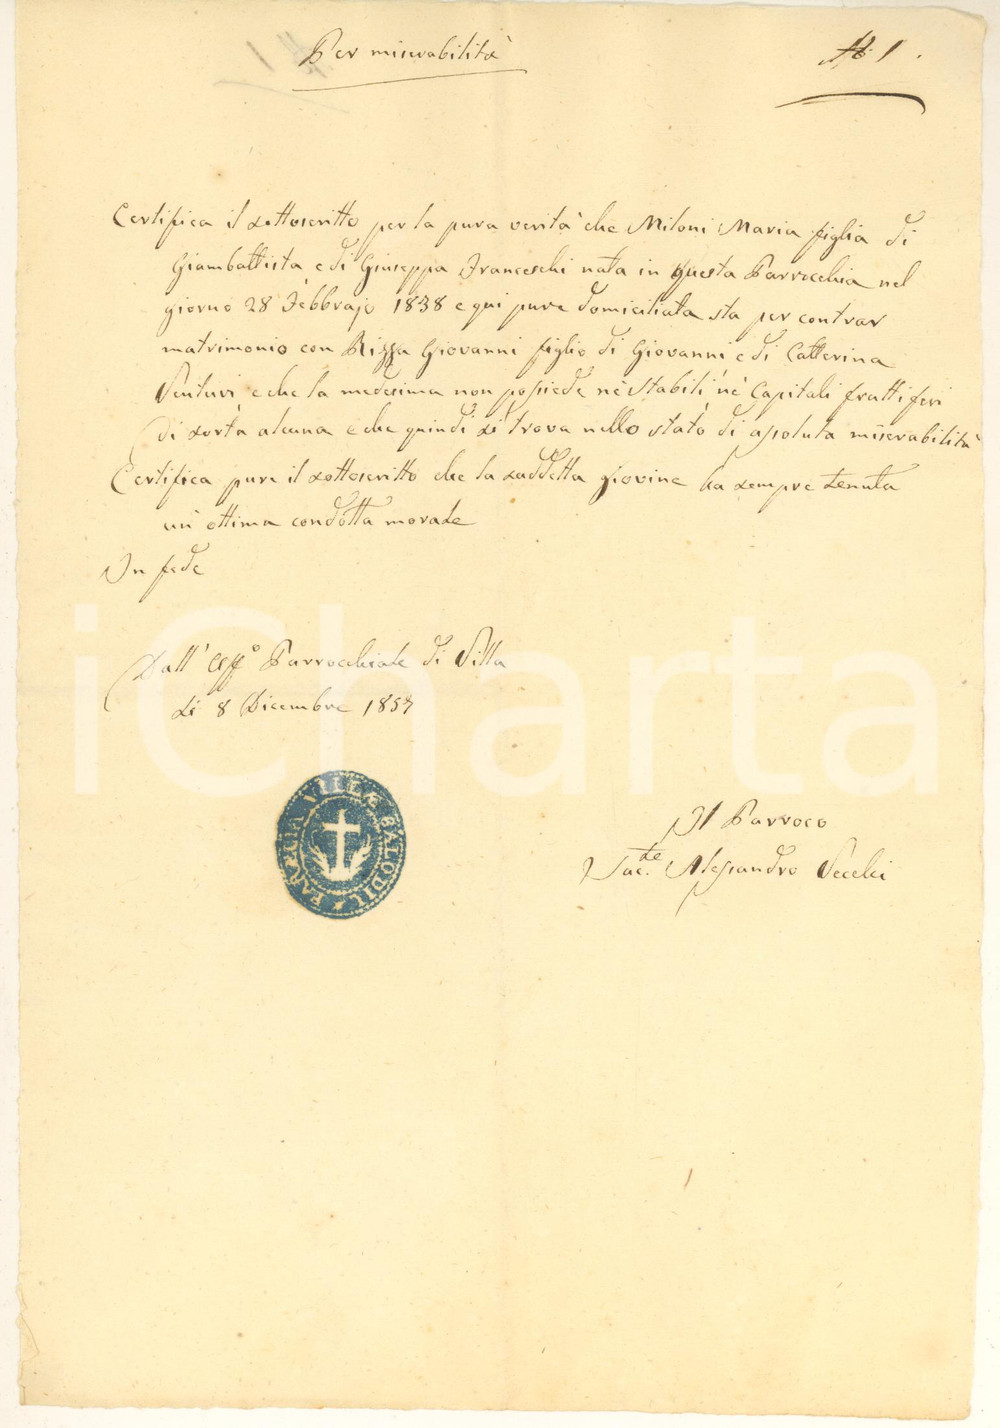 Per miserabilità
N 1
Certifica il sottoscritto per la pura verità che Miloni Maria figlia di
Giambattista e di Giuseppa Franceschi nata in questa Parrocchia nel
giorno 28 Febbrajo 1838 e qui pure domiciliata sta per contrar
matrimonio con Rizza Giovanni figlio di Giovanni e di Catterina
Venturi e che la medesima non possiede nè Stabili nè Capitali fruttiferi
di sorta alcuna e che quindi si trova nello stato di assoluta miserabilità
Certifica pure il sottoscritto che la suddetta giovine ha sempre tenuta
un' ottima condotta morale
In fede
Dall' Uff.º Parrocchiale di Villa
li 8 Dicembre 1857
Il Parroco
Sac.te Alessandro Vecchi
PAROCHIA VILLÆ SALODII
iCharta